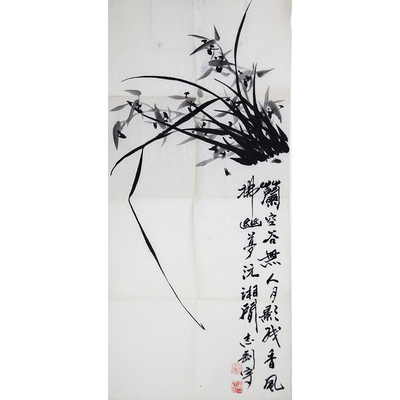 蘭空谷無人月影殘香風
拂幽夢沅湘間志剛